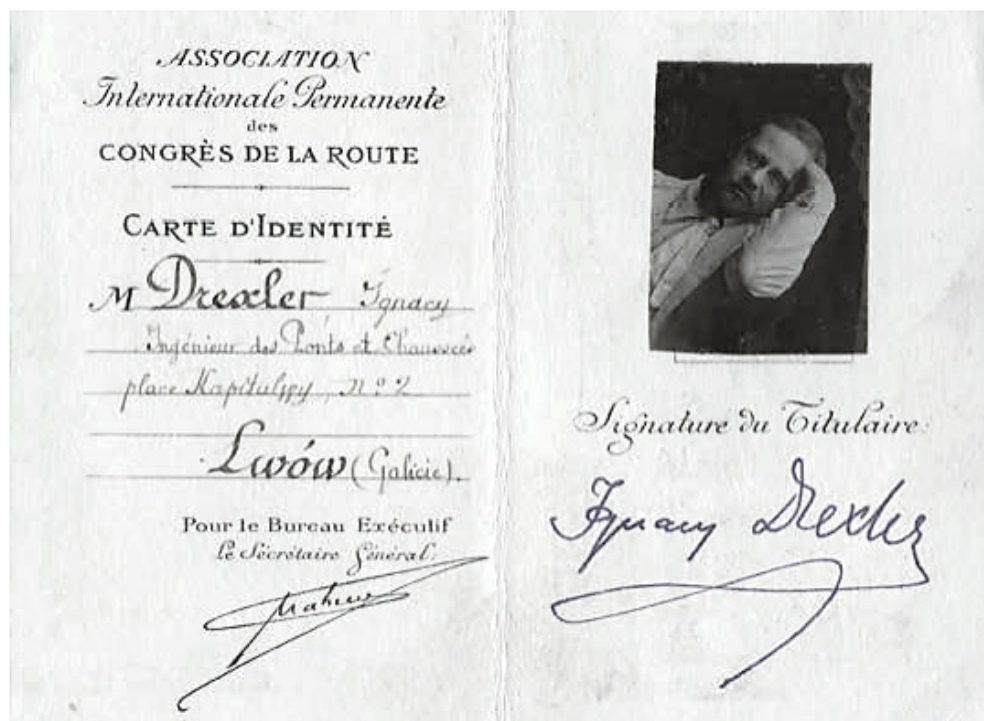 ASSOCIATION
Internationale Permanente
des
CONGRÈS DE LA ROUTE
CARTE D'IDENTITÉ
M Drexler Ignacy
Ingénieur des Ponts et Chaussées
place Kapitulny, N° 2
Lwów (Galicie).
Pour le Bureau Exécutif
Le Secrétaire Général:
Signature du Titulaire:
Ignacy Drexler